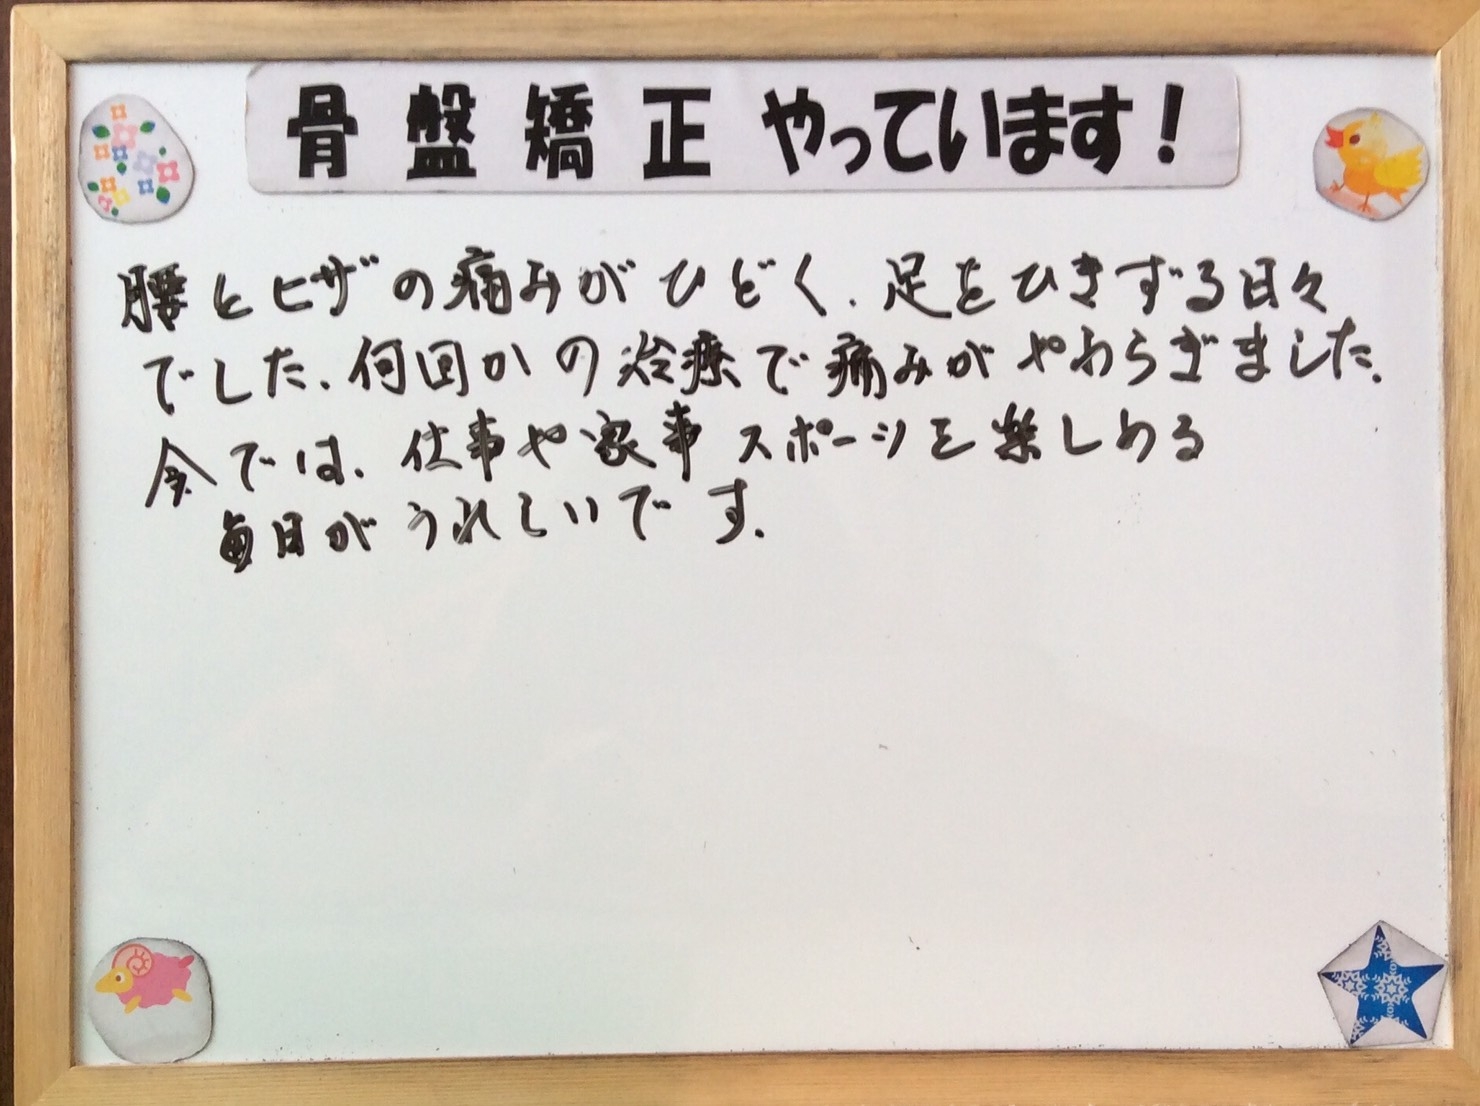 骨盤矯正やっています！
腰とヒザの痛みがひどく、足をひきずる日々
でした、何回かの治療で痛みがやわらぎました。
今では、仕事や家事スポーツを楽しめる
毎日がうれしいです。